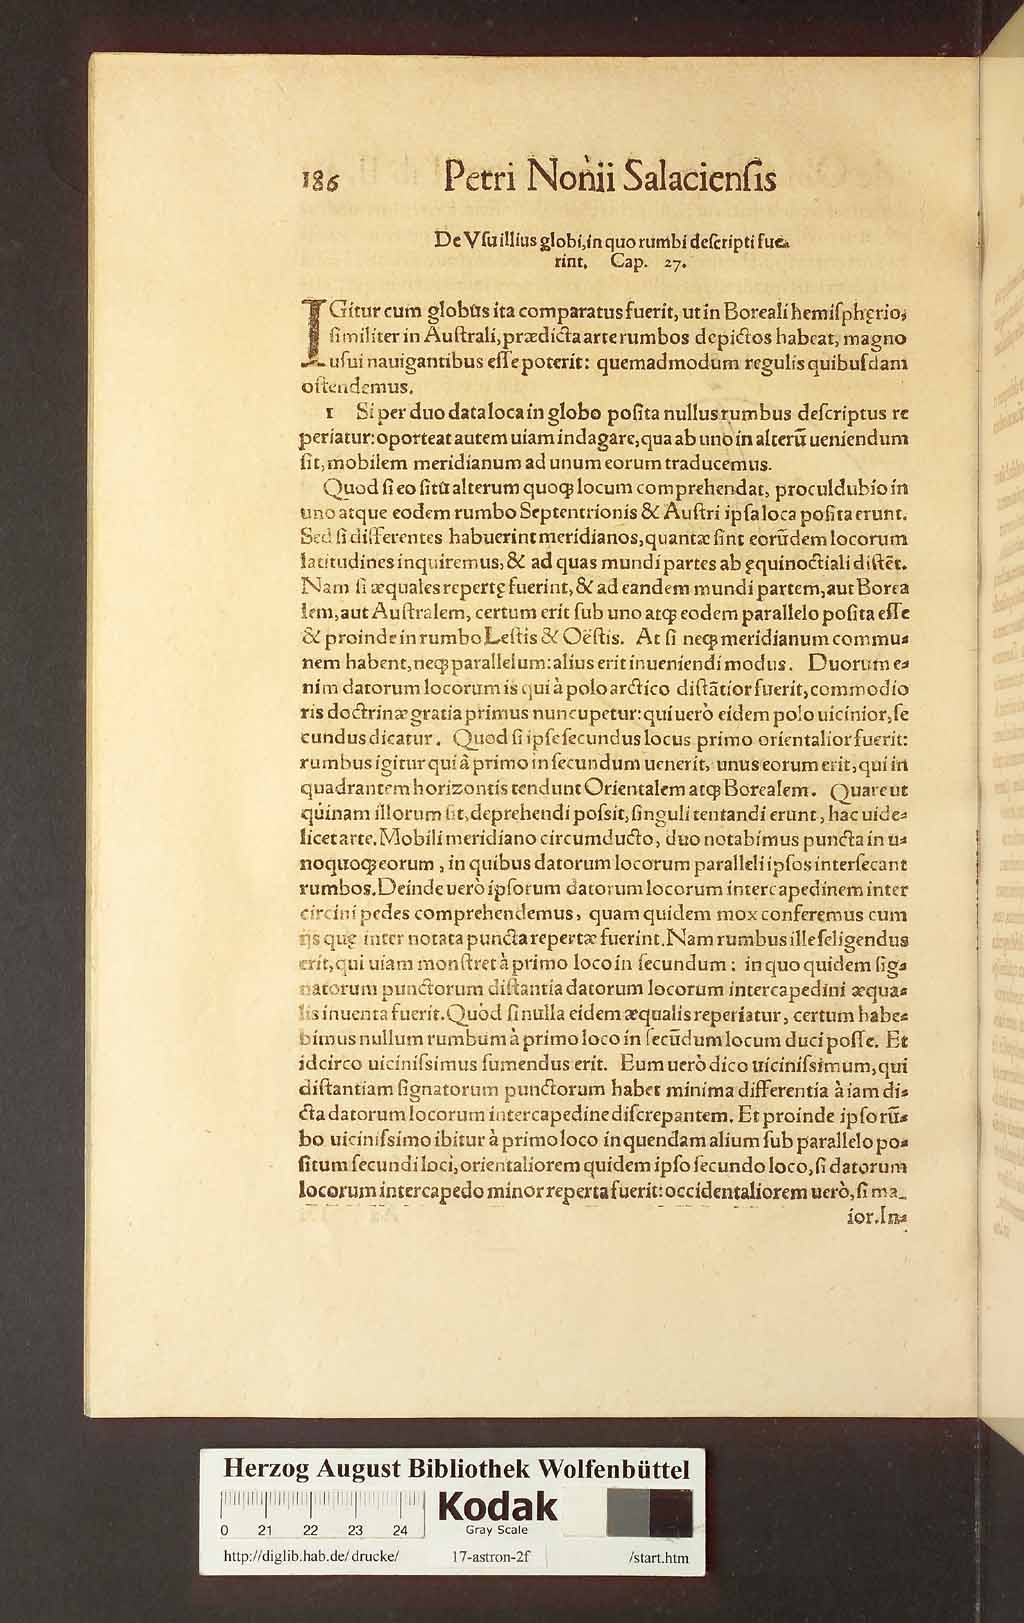 186 Petri Nonii Salaciensis
De Vſu illius globi, in quo rumbi deſcripti fue-
rint. Cap. 27.
IGitur cum globus ita comparatus fuerit, ut in Boreali hemiſphęrio,
ſimiliter in Auſtrali, prædicta arte rumbos depictos habeat, magno
uſui nauigantibus eſſe poterit: quemadmodum regulis quibuſdam
oſtendemus.
1 Si per duo data loca in globo poſita nullus rumbus deſcriptus re
periatur: oporteat autem uiam indagare, qua ab uno in alterū ueniendum
ſit, mobilem meridianum ad unum eorum traducemus.
Quod ſi eo ſitū alterum quoq; locum comprehendat, proculdubio in
uno atque eodem rumbo Septentrionis & Auſtri ipſa loca poſita erunt.
Sed ſi differentes habuerint meridianos, quantæ ſint eorūdem locorum
latitudines inquiremus, & ad quas mundi partes ab ęquinoctiali diſtēt.
Nam ſi æquales repertę fuerint, & ad eandem mundi partem, aut Borea
lem, aut Auſtralem, certum erit ſub uno atq; eodem parallelo poſita eſſe
& proinde in rumbo Leſtis & Oëſtis. At ſi neq; meridianum commu-
nem habent, neq; parallelum: alius erit inueniendi modus. Duorum e-
nim datorum locorum is qui à polo arctico diſtātior fuerit, commodio
ris doctrinæ gratia primus nuncupetur: qui uerò eidem polo uicinior, ſe
cundus dicatur. Quod ſi ipſe ſecundus locus primo orientalior fuerit:
rumbus igitur qui à primo in ſecundum uenerit, unus eorum erit, qui in
quadrantem horizontis tendunt Orientalem atq; Borealem. Quare ut
quinam illorum ſit, deprehendi poſsit, ſinguli tentandi erunt, hac uide-
licet arte. Mobili meridiano circumducto, duo notabimus puncta in u-
noquoq; eorum, in quibus datorum locorum paralleli ipſos interſecant
rumbos. Deinde uerò ipſorum datorum locorum intercapedinem inter
circini pedes comprehendemus, quam quidem mox conferemus cum
ijs quę inter notata puncta repertæ fuerint. Nam rumbus ille ſeligendus
erit, qui uiam monſtret à primo loco in ſecundum: in quo quidem ſig-
natorum punctorum diſtantia datorum locorum intercapedini æqua-
lis inuenta fuerit. Quòd ſi nulla eidem æqualis reperiatur, certum habe-
bimus nullum rumbum à primo loco in ſecūdum locum duci poſſe. Et
idcirco uiciniſsimus ſumendus erit. Eum uerò dico uiciniſsimum, qui
diſtantiam ſignatorum punctorum habet minima differentia à iam di-
cta datorum locorum intercapedine diſcrepantem. Et proinde ipſo rū-
bo uiciniſsimo ibitur à primo loco in quendam alium ſub parallelo po-
ſitum ſecundi loci, orientaliorem quidem ipſo ſecundo loco, ſi datorum
locorum intercapedo minor reperta fuerit: occidentaliorem uerò, ſi ma-
ior. In-
Herzog August Bibliothek Wolfenbüttel
Kodak
Gray Scale
0 21 22 23 24
http://diglib.hab.de/drucke/ 17-astron-2f /start.htm